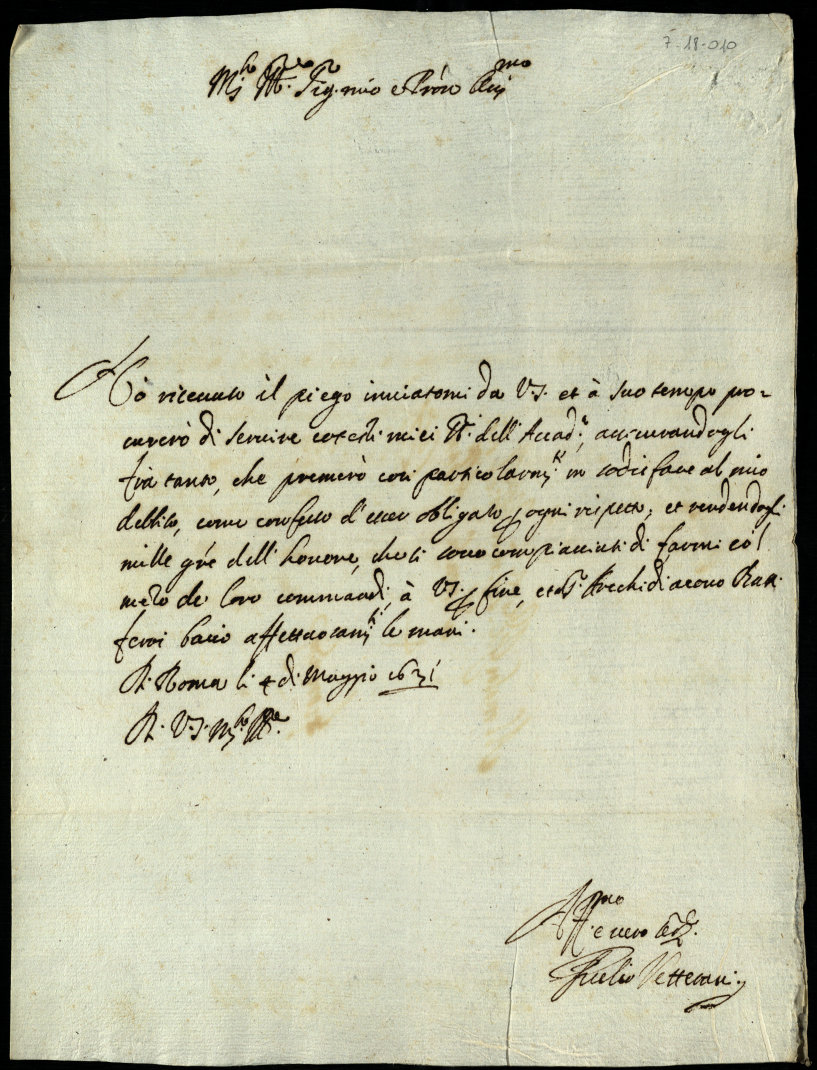 7-18-010
M.to Ill.re Sig.r mio e Prōn Oss.mo
Hò riceuuto il piego inuiatomi da V.S. et à suo tempo pro=
curerò di seruire cotesti miei SS.ri dell'Accad.a, assicurandogli
frà tanto, che premerò così particolarm.te in sodisfare al mio
debito, come confesso d'esser obligato ogni rispetto; et rendendogli
mille grē dell'honore, che si sono compiacciuti di farmi co'l
mezo de loro commandi, à V.S. fine, et Arcidiacono
bacio affettuosam.te le mani.
Di Roma li 4 di Maggio 1631
Di V.S. M.to Ill.re
Aff.mo e uero
Giulio Vetterani